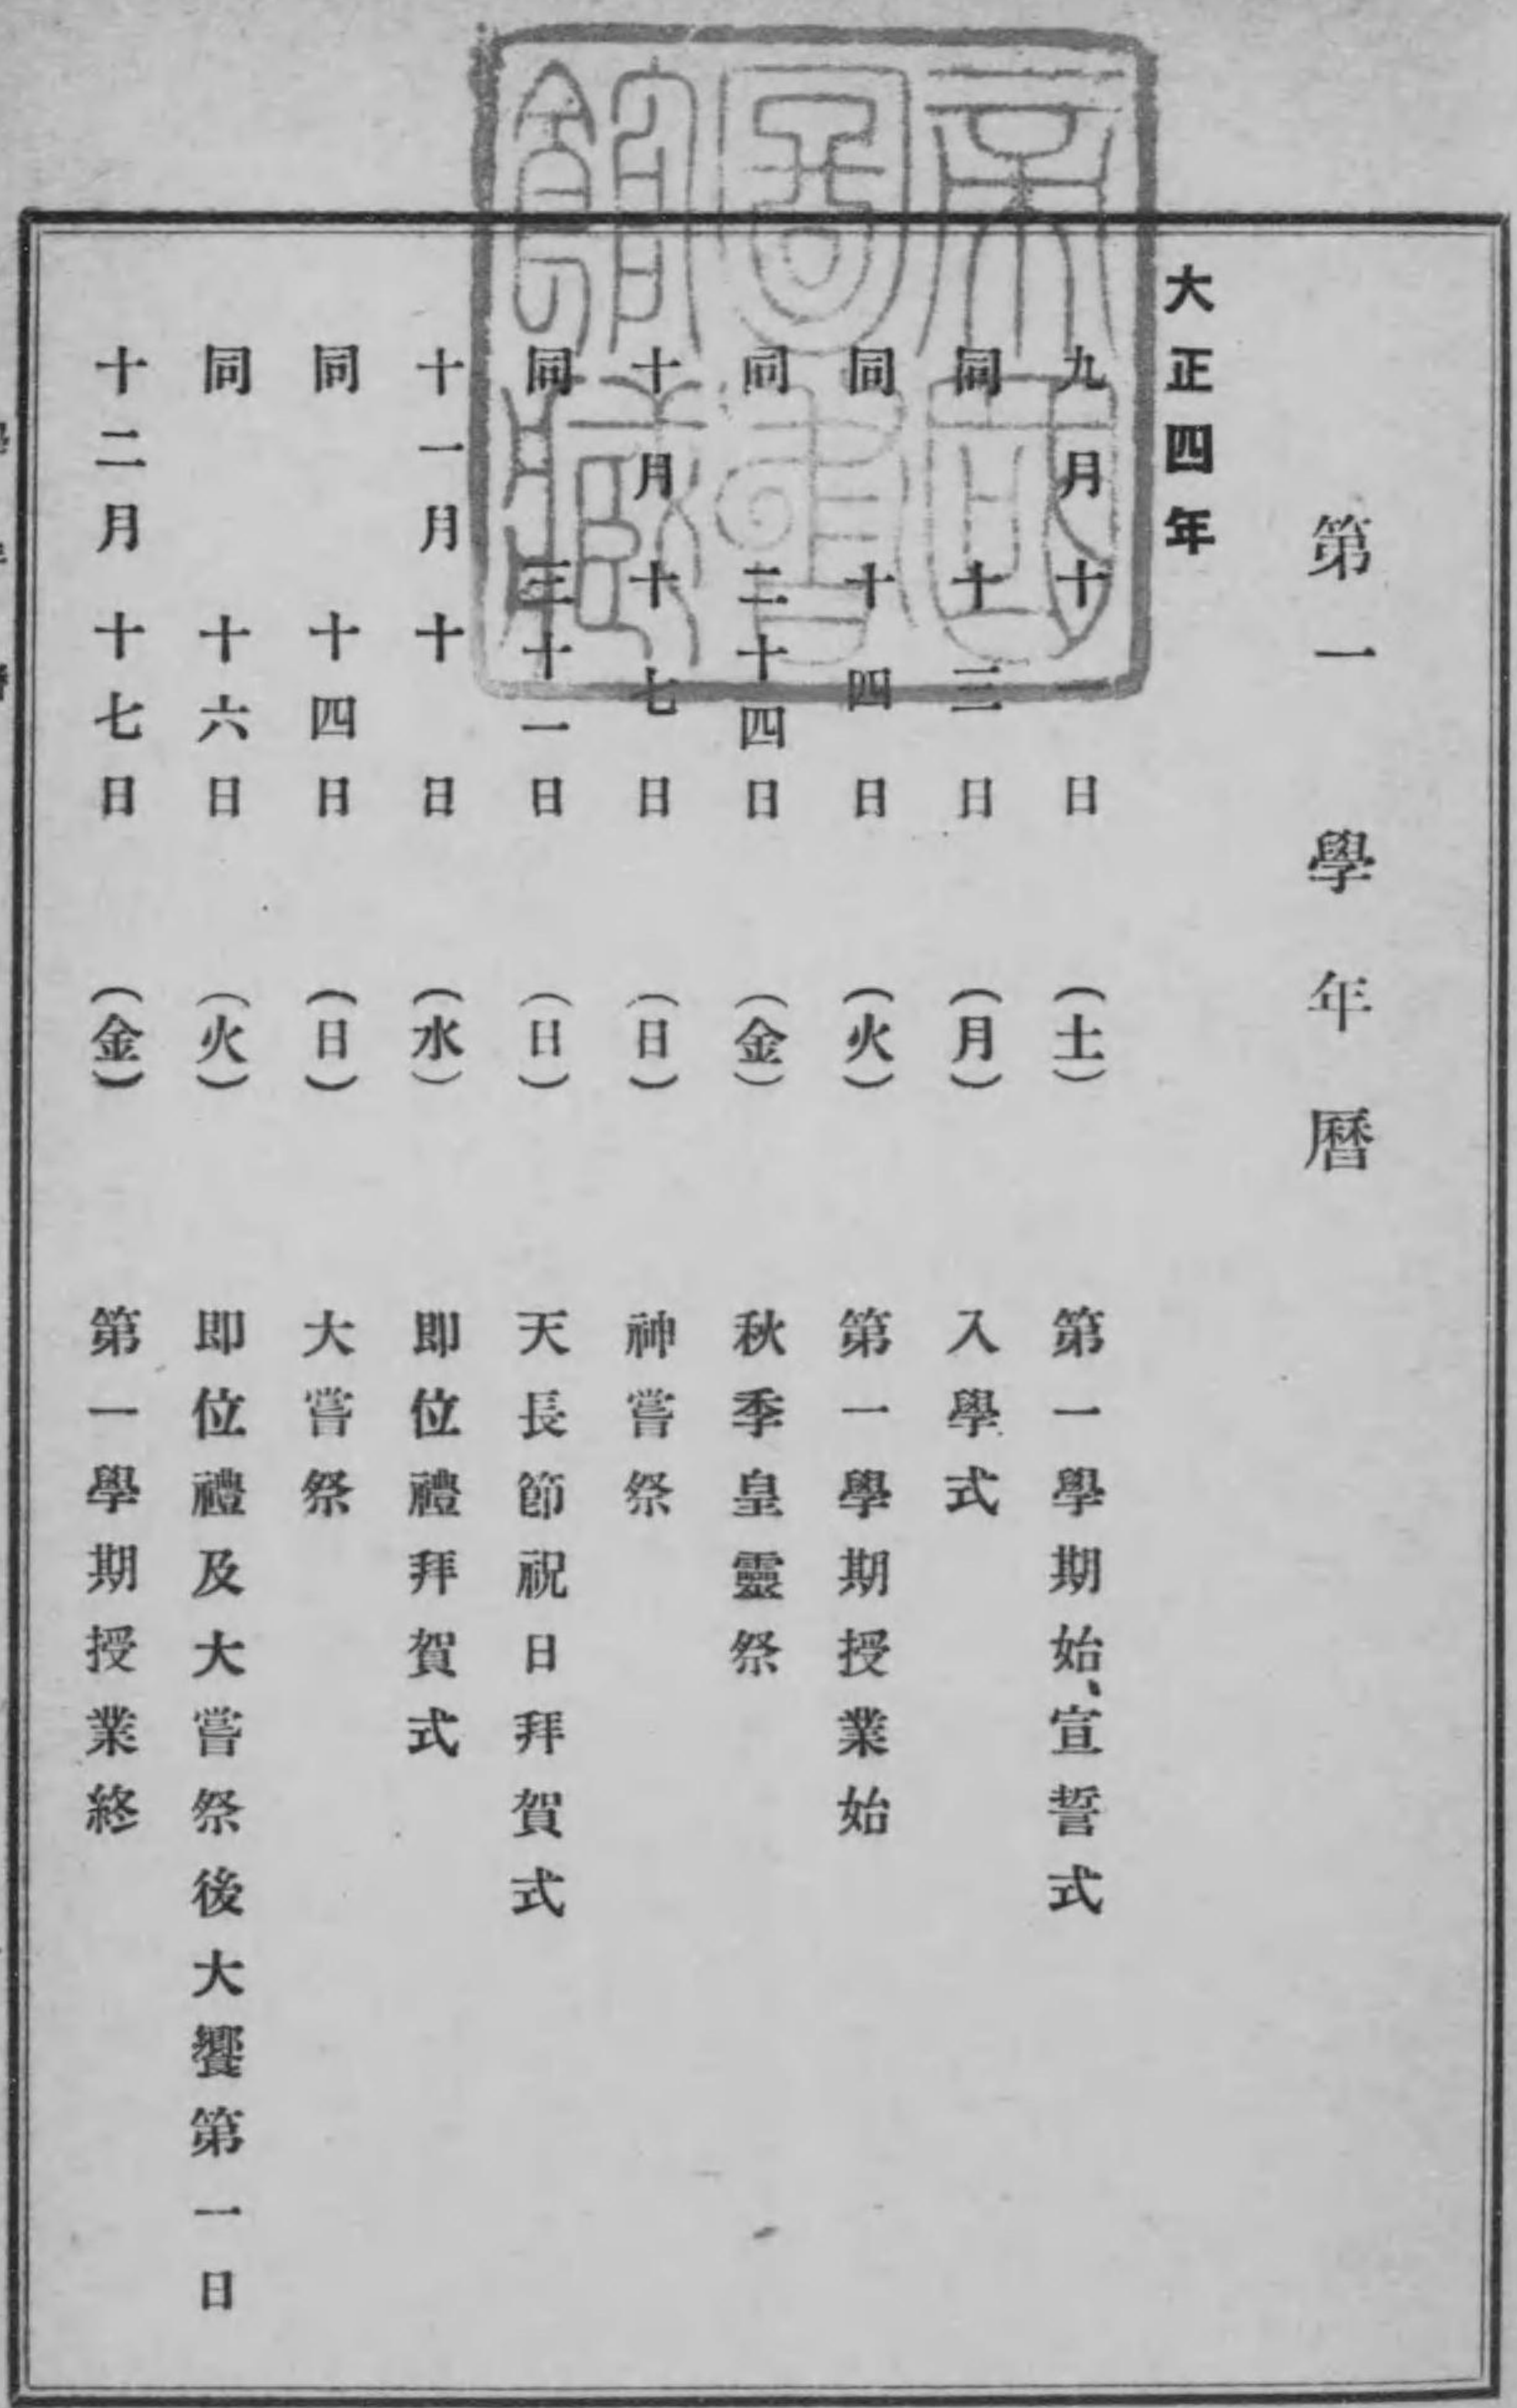 第一 學年曆
大正四年
九月十一日 (土) 第一學期始、宣誓式
同 十三日 (月) 入學式
同 十四日 (火) 第一學期授業始
同 二十四日 (金) 秋季皇靈祭
十月十七日 (日) 神嘗祭
同 三十一日 (日) 天長節祝日拜賀式
十一月十日 (水) 即位禮拜賀式
同 十四日 (日) 大嘗祭
同 十六日 (火) 即位禮及大嘗祭後大饗第一日
十二月十七日 (金) 第一學期授業終
帝國
圖書
館藏